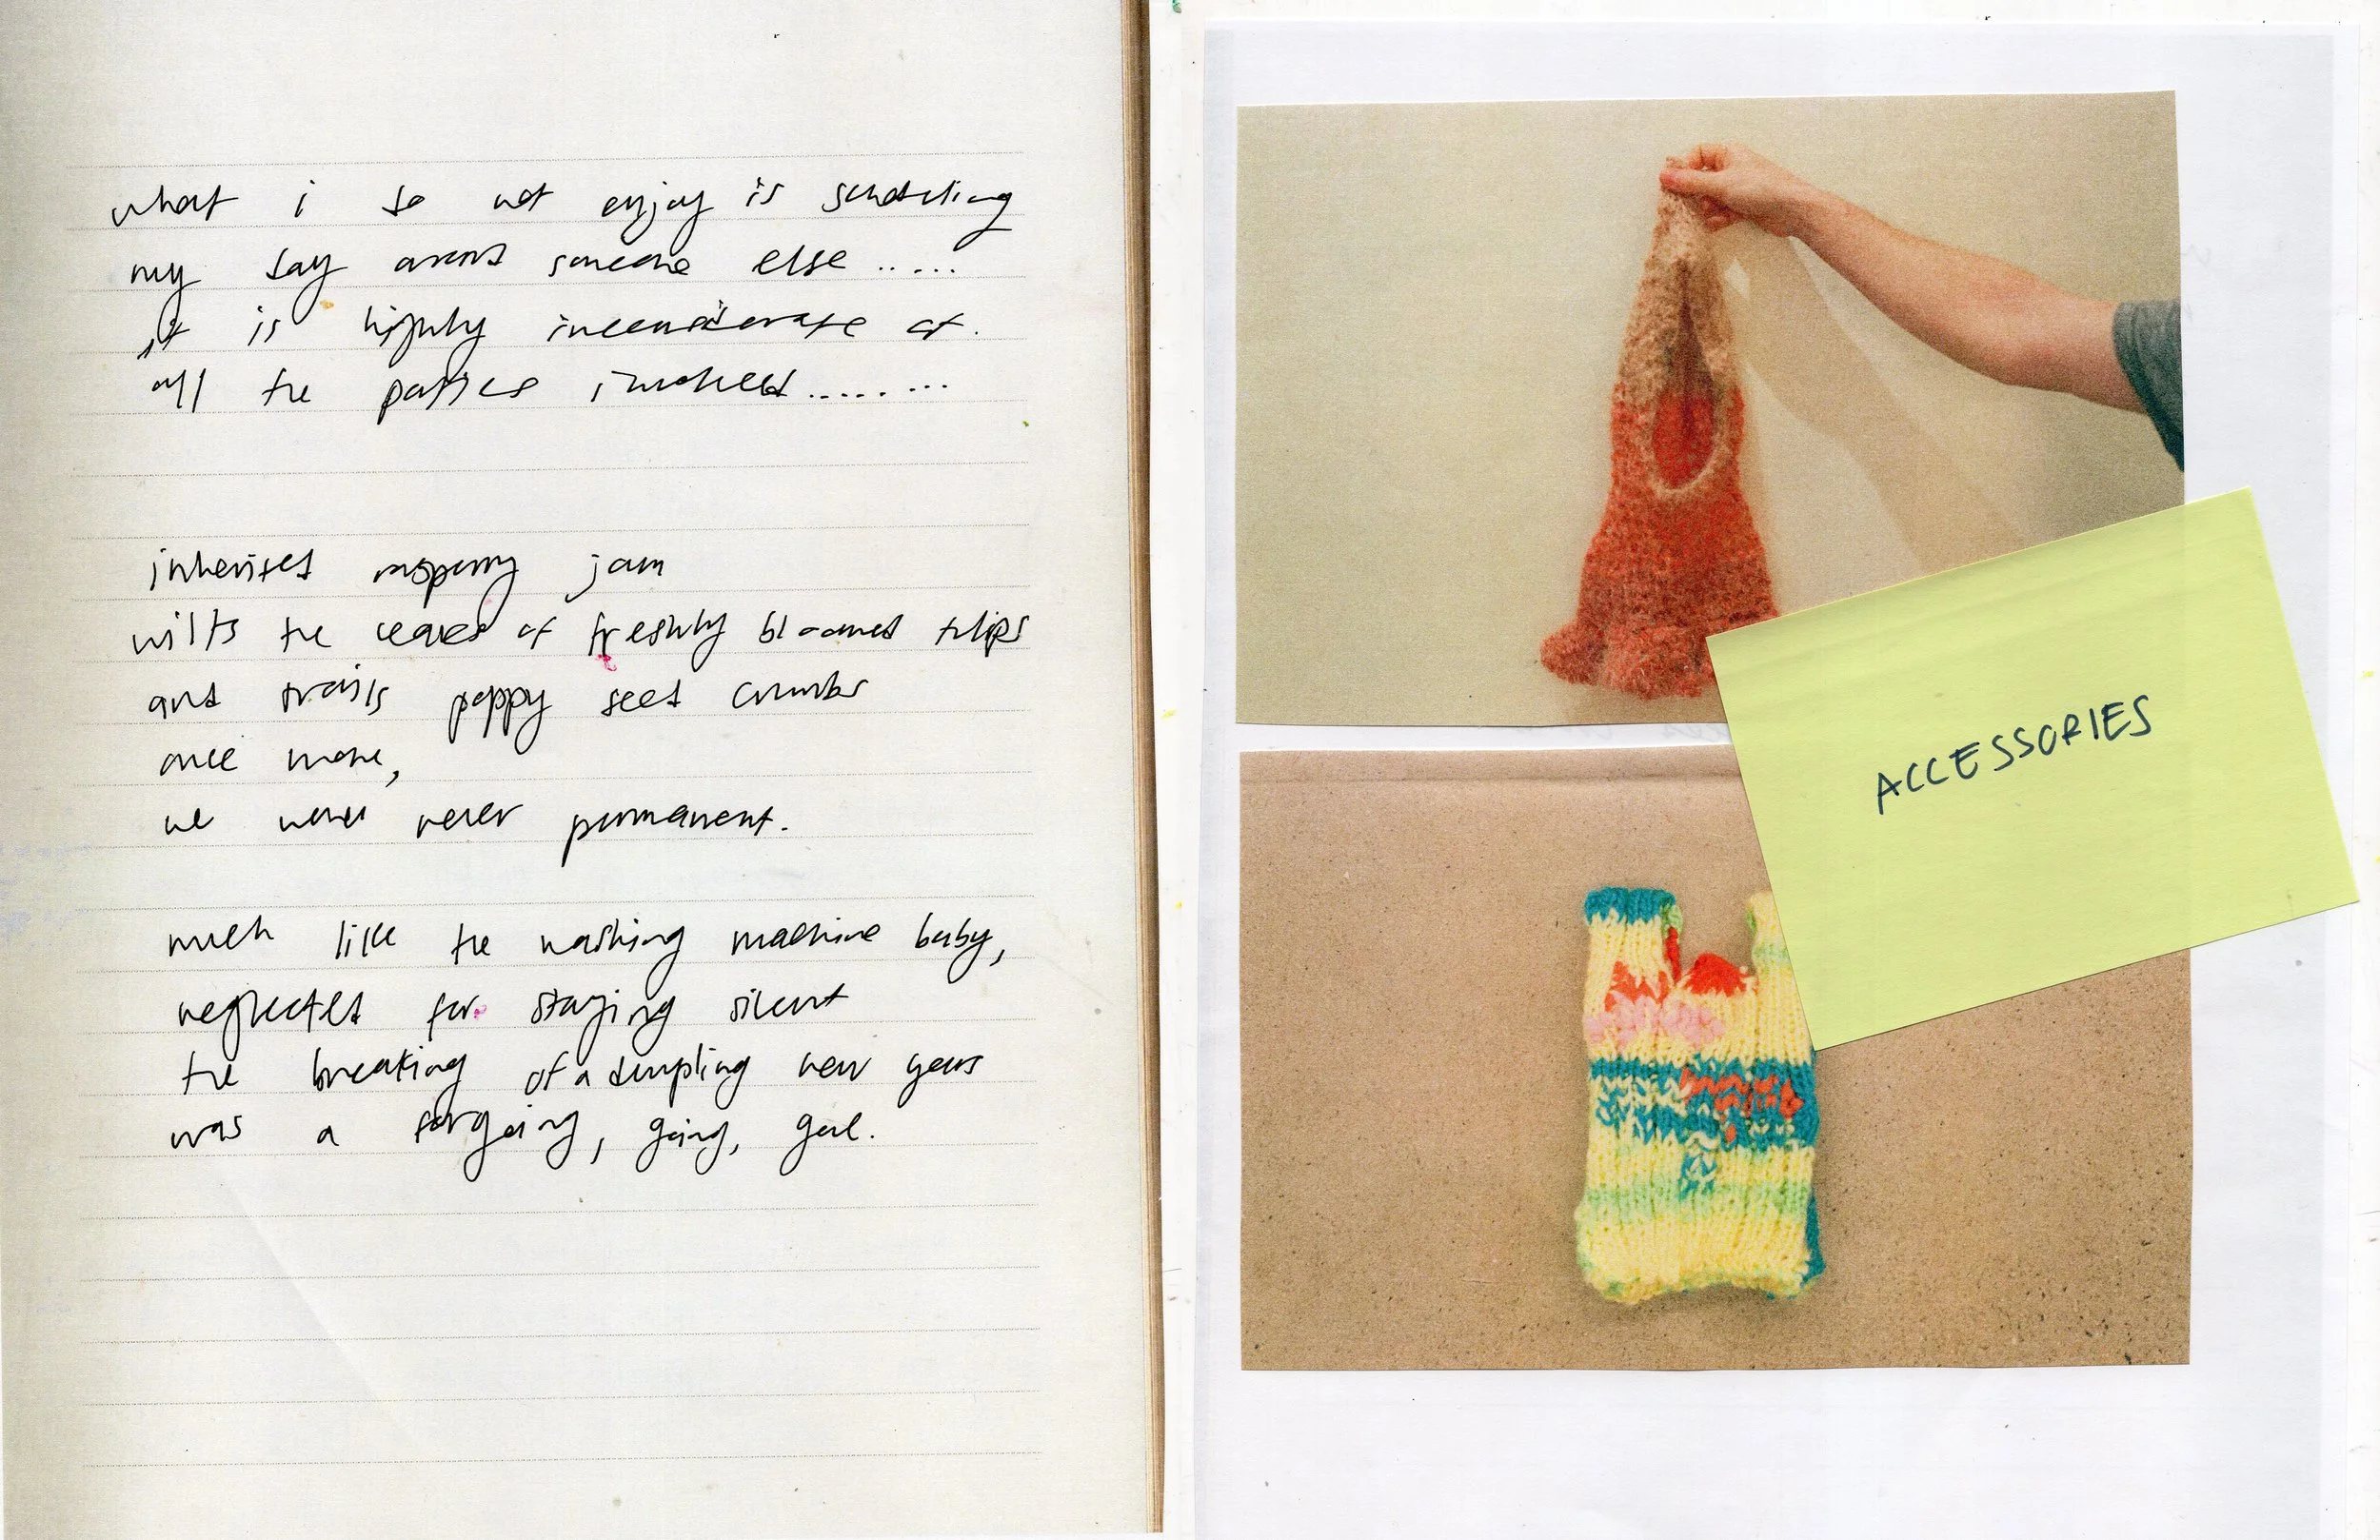 what i do not enjoy is scheduling
my day around someone else .....
it is highly inconsiderate of.
all the parties involved ........
inherited raspberry jam
wilts the leaves of freshly bloomed tulips
and trails poppy seed crumbs
once more,
we were never permanent.
much like the washing machine baby,
neglected for staying silent
the breaking of a dumpling new years
was a forgoing, going, goal.
ACCESSORIES